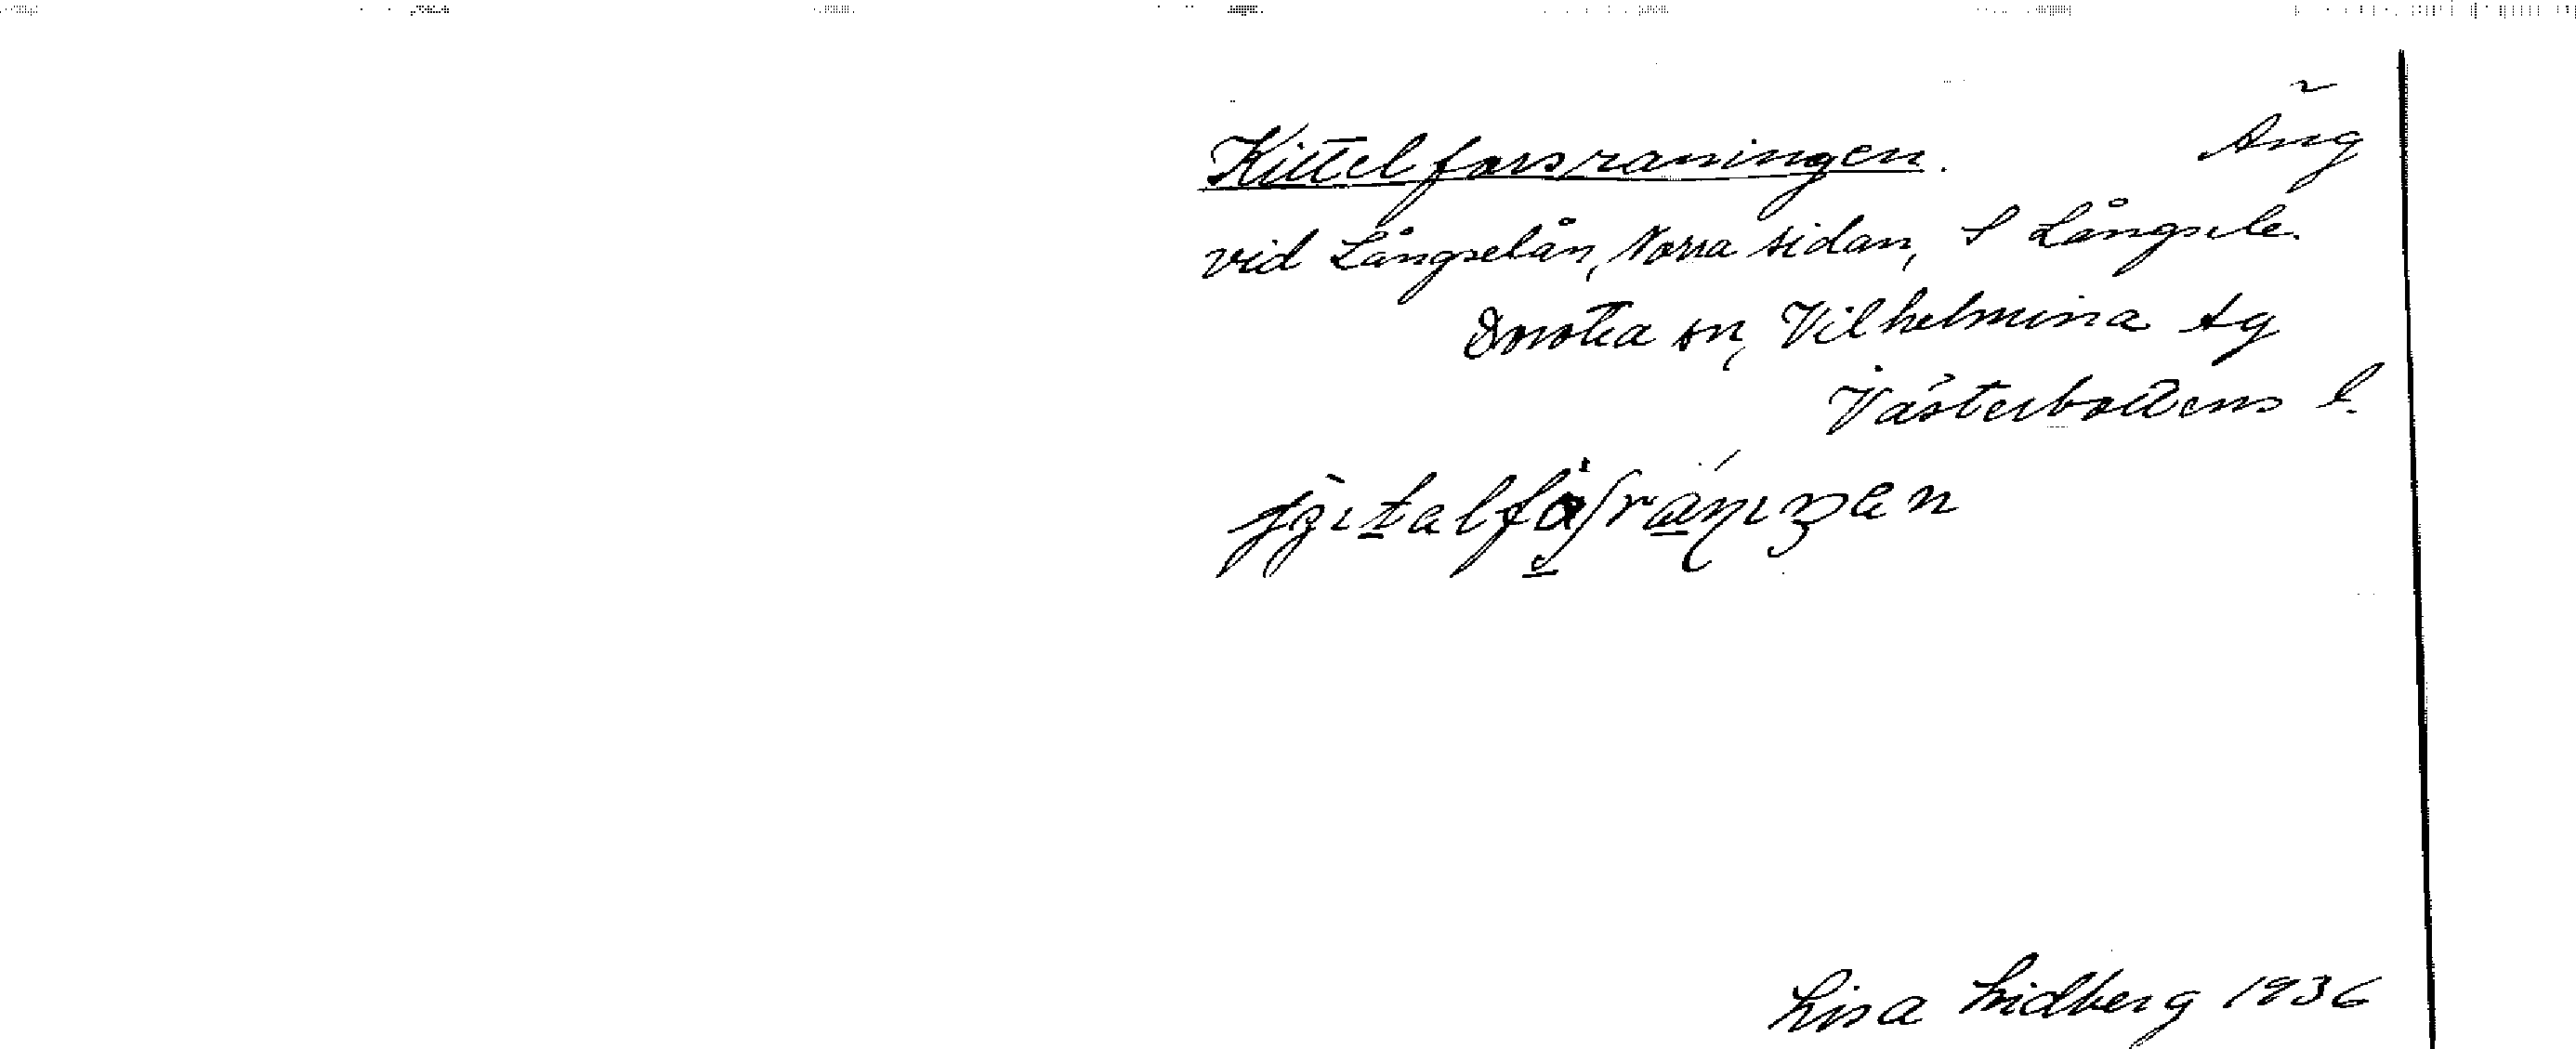 Kittelforsraningen. Ång
vid Långselån, Norra sidan, S Långsele.
Dorotea sn, Vilhelmina tg
Västerbottens l.
Lisa Lidberg 1936